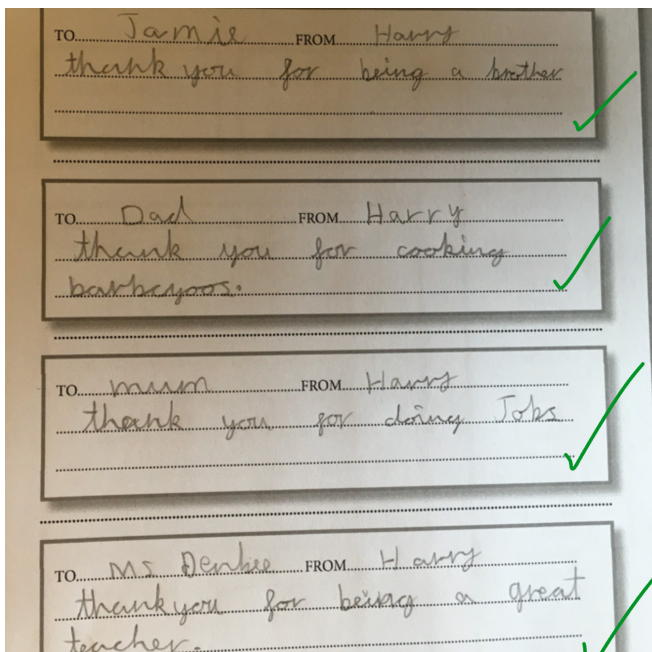 TO Jamie FROM Harry
thank you for being a brother
TO Dad FROM Harry
thank you for cooking
barbeyoos.
TO mum FROM Harry
thank you for doing Jobs
TO Ms FROM Harry
thankyou for being a great
teacher.